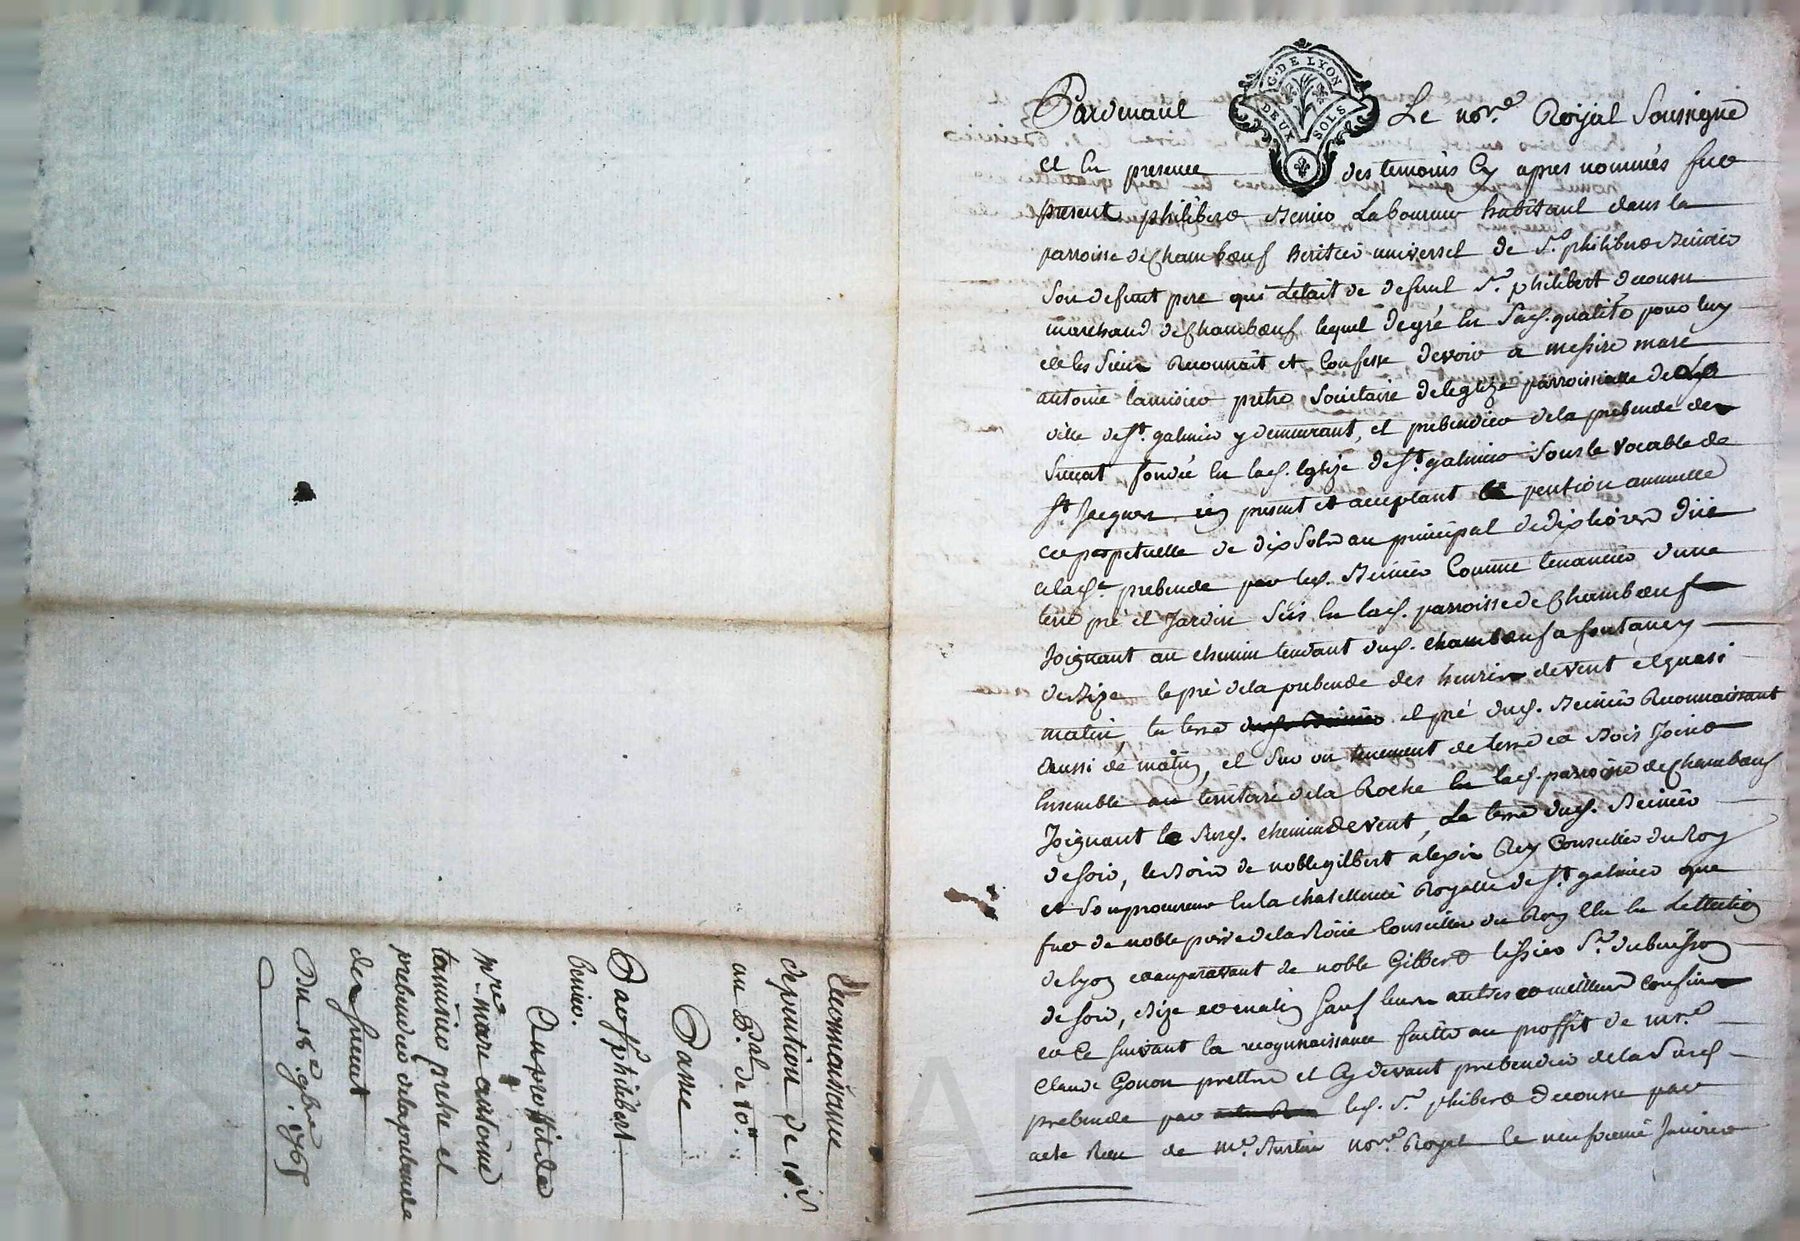 Pardevant Le no.re Royal Soussigné
G. DE LYON
DEUX SOLS
et En presence des temoins Cy apres nommés fut
present philibert Benier Laboureur habitant dans la
parroisse de Chambœuf heritier universel de S.r philibert Benier
Son defunt pere qui l'etait de defunt S.r philibert decousu
marchand de Chambœuf lequel de gré En Sad. qualité pour luy
et les Siens Reconnait et Confesse devoir a messire marc
antoine tamisier pretre Societaire de leglize parroissialle de La
ville de St. galmier y demeurant, et prebendier de la prebende de
fondée En lad. Eglize de St. galmier Sous le vocable de
St. Jacques icy present et acceptant la pention annuelle
et perpetuelle de dix Sols au principal de dix livres düe
a lad. prebende par led. Benier Comme tenancier d'une
terre pré et Jardin Sis En lad. parroisse de Chambœuf
Joignant au chemin tendant dud. Chambœuf a fontanes
de Bize le pré de la prebende des henris de vent et quasi
matin, la terre et pré dud. Benier Reconnaissant
aussi de matin, et Sur un tenement de terre et Bois Joint
Ensemble au territoire de la Roche En lad. parroisse de Chambœuf
Joignant le Susd. chemin de vent, La terre dud. Benier
de Soir, le Bois de noble gilbert alexis Rey Conseiller du Roy
et Son procureur En la chatellenie Royalle de St. galmier que
fut de noble de la Roüe Conseiller du Roy Elu En Lellection
de lyon et auparavant de noble Gilbert S.r dubuisson
de Soir, Bize et matin Sauf leurs autres et meilleurs confins
et Ce Suivant la recognaissance faitte au proffit de m.re
Claude Gonon prettre et Cy devant prebendier de la Susd.
prebende par led. S.r philibert decousu par
acte Reçu de m.e no.re Royal le neufvieme Janvier
Reconnaissance
de pention de 10 s.
au P.al de 10 ll
Passé
Par S.r philibert
benier.
Au proffit de
m.re marc antoine
tamisier pretre et
prebendier de la prebende
Du 18e 9bre 1765